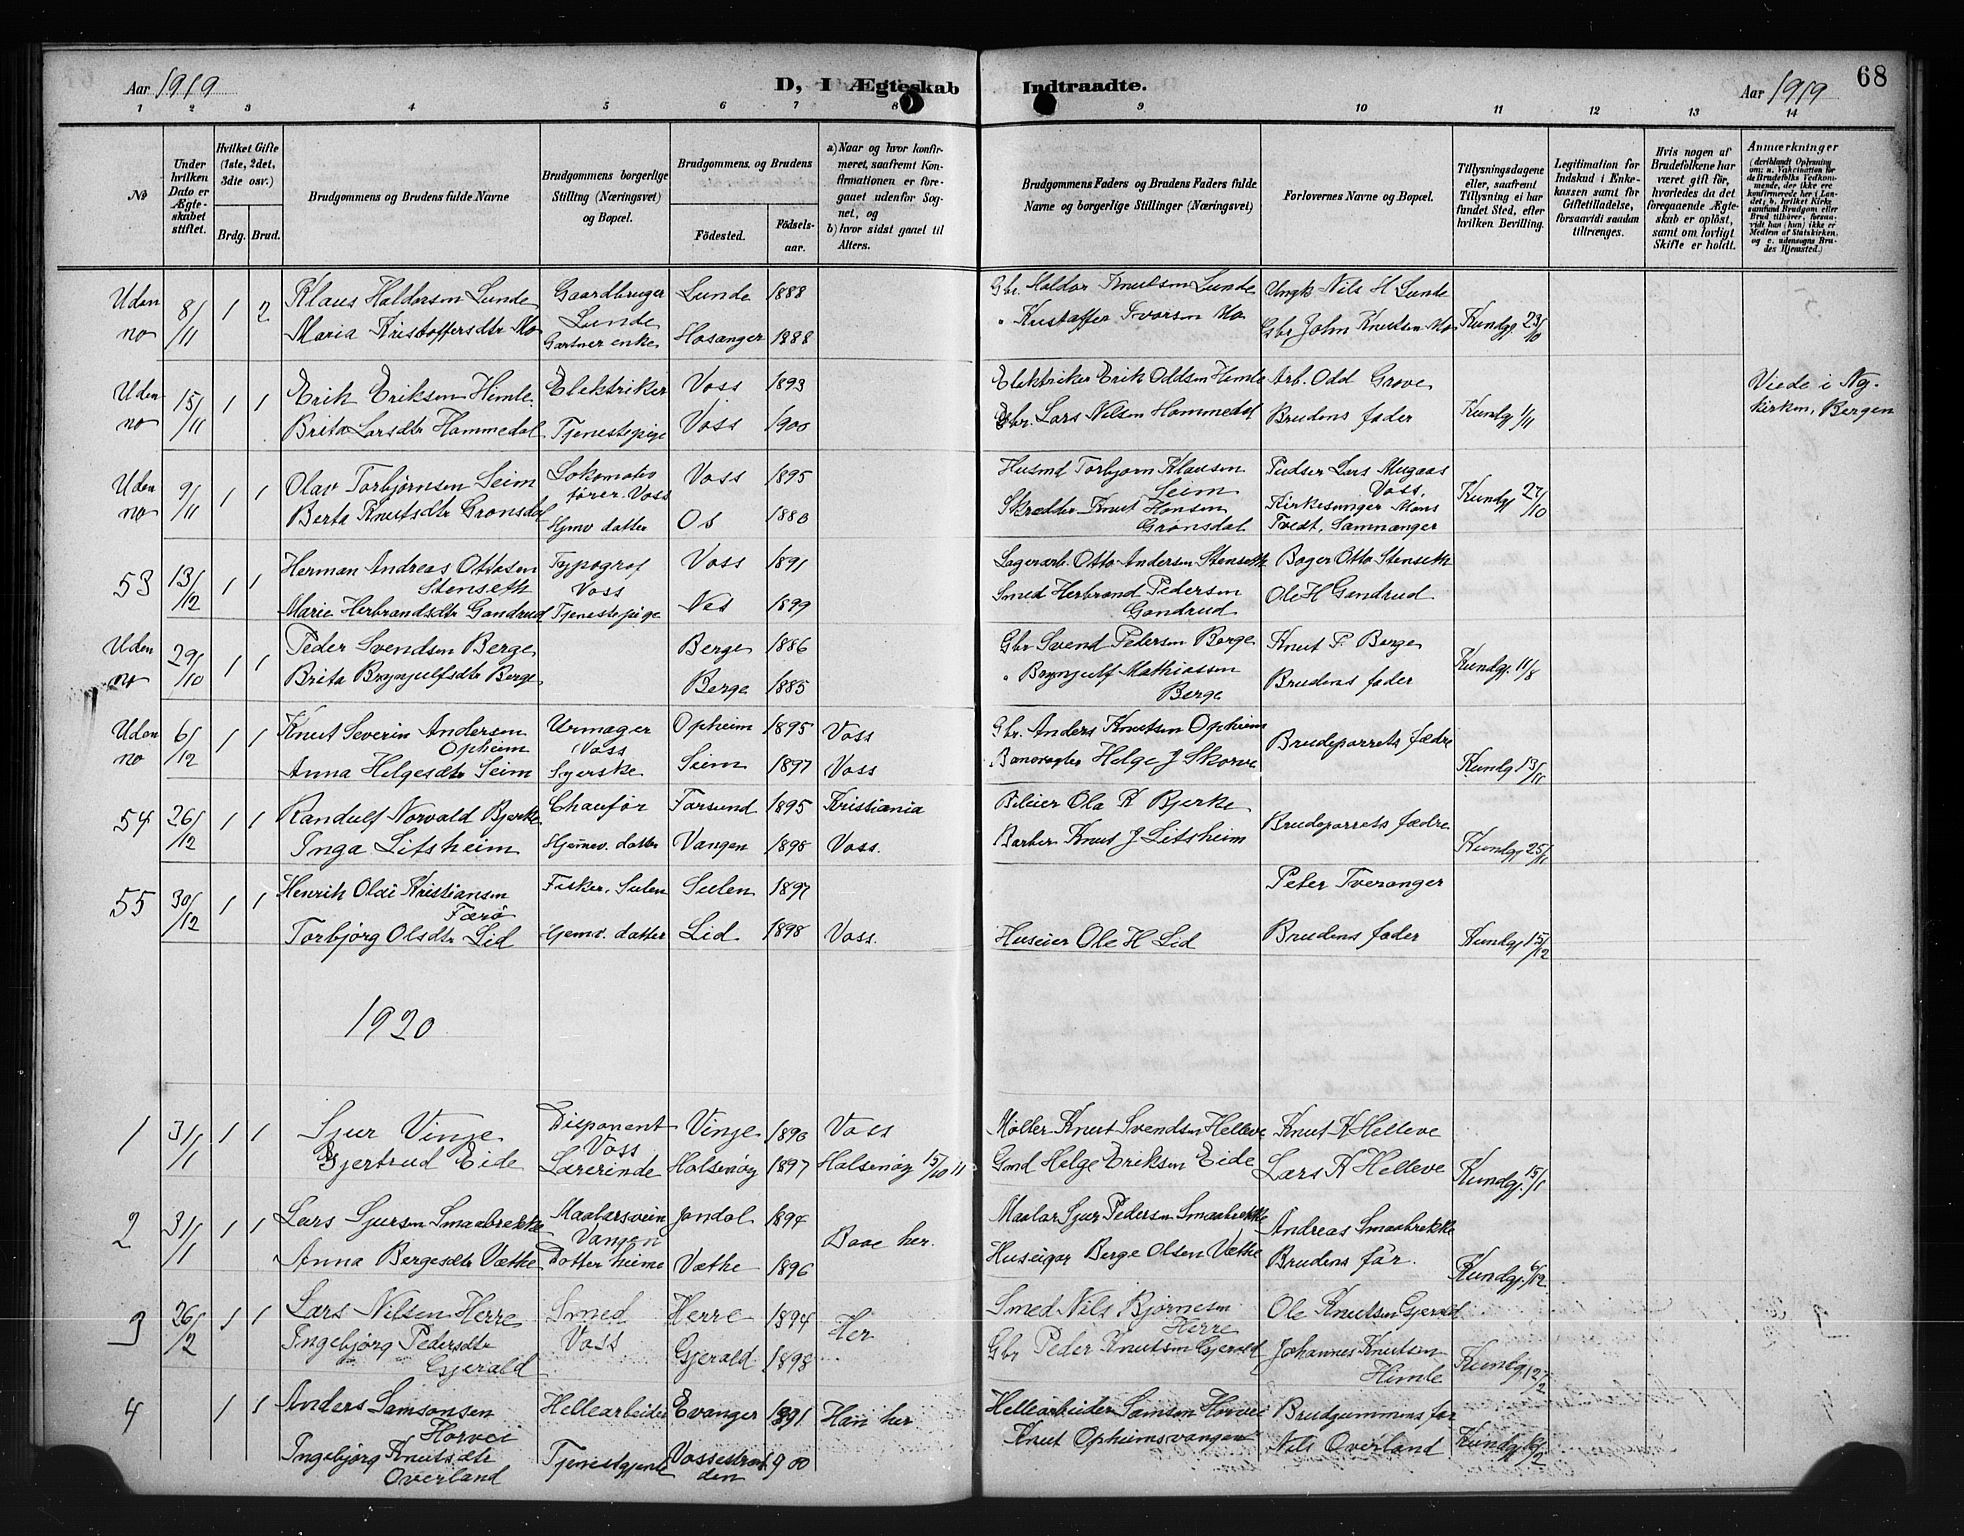 Aar 1919
D, I Ægteskab Indtraadte.
Aar 1919
68
1 2 3 4 5 6 7 8 9 10 11 12 13 14
No
Under hvilken Dato er Ægteskabet stiftet.
Hvilket Gifte (1ste, 2det, 3dte osv.)
Brdg. Brud.
Brudgommens og Brudens fulde Navne
Brudgommens borgerlige Stilling (Næringsvei) og Bopæl.
Brudgommens og Brudens
Födested.
Födselsaar.
a) Naar og hvor konfirmeret, saafremt Konfirmationen er foregaaet udenfor Sognet, og
b) hvor sidst gaaet til Alters.
Brudgommens Faders og Brudens Faders fulde Navne og borgerlige Stillinger (Næringsvei)
Forlovernes Navne og Bopæl.
Tillysningsdagene eller, saafremt Tillysning ei har fundet Sted, efter hvilken Bevilling.
Legitimation for Indskud i Enkekassen samt for Giftetilladelse, forsaavidt saadan tiltrænges.
Hvis nogen af Brudefolkene har været gift för, hvorledes da det foregaaende Ægteskab er oplöst, samt om lovligt Skifte er holdt.
Anmærkninger
Uden no 8/11 1 2 Klaus Haldorsen Lunde Gaardbruger Lunde Lunde 1888 Gbr. Haldor Knutsen Lunde Ungk Nils H Lunde
Maria Kristoffersdtr Mo Gartner enke Hosanger 1888 " Kristoffer Ivorsen Mo Gbr John Knutsen Mo Kundgj 23/10
Uden no 15/11 1 1 Erik Eriksen Himle Elektriker Voss 1893 Elektriker Erik Oddsen Himle Arb. Odd Grove Viede i Ny-
Brita Larsdtr Hommedal Tjenestepige Voss 1900 Gbr. Lars Nilsen Hommedal Brudens fader Kundgj 1/11 kirken, Bergen
Uden no 9/11 1 1 Olav Torbjørnsen Seim Lokomotivfører Voss Voss 1895 Husmd Torbjørn Klausen Seim Pudser Lars Mugaas Voss.
Berta Knutsdtr Grønsdal Hjmv datter Os 1880 Skrædder Knut Hansen Grønsdal Kirkesanger Mons Tvedt, Samnanger Kundgj 27/10
53 13/12 1 1 Herman Andreas Ottosen Stenseth Typograf Voss Voss 1891 Lagerarb. Otto Andersen Stenseth Bager Otto Stenseth
Marie Herbrandsdtr Gandrud Tjenestepige Nes 1899 Smed Herbrand Pedersen Gandrud Ole H Gandrud
Uden no 29/10 1 1 Peder Svendsen Berge Berge 1886 Gbr Svend Pedersen Berge Knut P. Berge
Brita Brynjulfsdtr Berge Berge 1885 " Brynjulf Mathiassen Berge Brudens fader Kundgj. 11/8
Uden no 6/12 1 1 Knut Severin Andersen Opheim Urmager Voss Opheim 1895 Voss Gbr. Anders Knutsen Opheim Brudeparrets fædre
Anna Helgesdtr Seim Syerske Seim 1897 Voss Banevagter Helge J Skorve Kundgj 13/11
54 26/12 1 1 Randulf Norvald Bjerke Chaufør Farsund 1895 Kristiania Bileier Ola K Bjerke Brudeparrets fædre
Inga Litsheim Hjemmev. datter Vangen 1898 Voss. Barber Knut J Litsheim Kundgj 25/11
55 30/12 1 1 Henrik Olai Kristiansen Færø Fisker, Sulen Sulen 1897 Peter Tveranger
Torbjørg Olsdtr Lid Hjemv. datter Lid 1898 Voss. Huseier Ole H Lid Brudens fader Kundgj 15/12
1920
1 31/1 1 1 Sjur Vinje Disponent Voss Vinje 1890 Voss Møller Knut Svendsen Helleve Knut K Helleve
Gjertrud Eide Lærerinde Halsenøy 1897 Halsenøy 15/10 11 Gmd Helge Eriksen Eide Lars K Helleve Kundgj. 15/1
2 31/1 1 1 Lars Sjursen Smaabrekke Maalarsvein Vangen Jondal 1894 Baae her. Maalar Sjur Pedersen Smaabrekke Andreas Smaabrekke
Anna Bergesdtr Væthe Datter heime Væthe 1896 Huseigar Berge Olsen Væthe Brudens far. Kundgj. 6/12
3 26/2 1 1 Lars Nilsen Herre Smed Voss Herre 1894 Her Smed Nils Bjørnesen Herre Ole Knutsen Gjerald
Ingebjørg Pedersdtr Gjerald Gjerald 1898 Gbr Peder Knutsen Gjerald Johannes Knutsen Himle Kundgj 12/2
4 1 1 Anders Samsonsen Horvei Hellearbeider Evanger 1891 Han her Hellearbeider Samson Horvei Brudgummens far
Ingebjørg Knutsdtr Overland Tjenestgjente Vossestranden 1900 Knut Opheimsvangen Nils Overland Kundgj